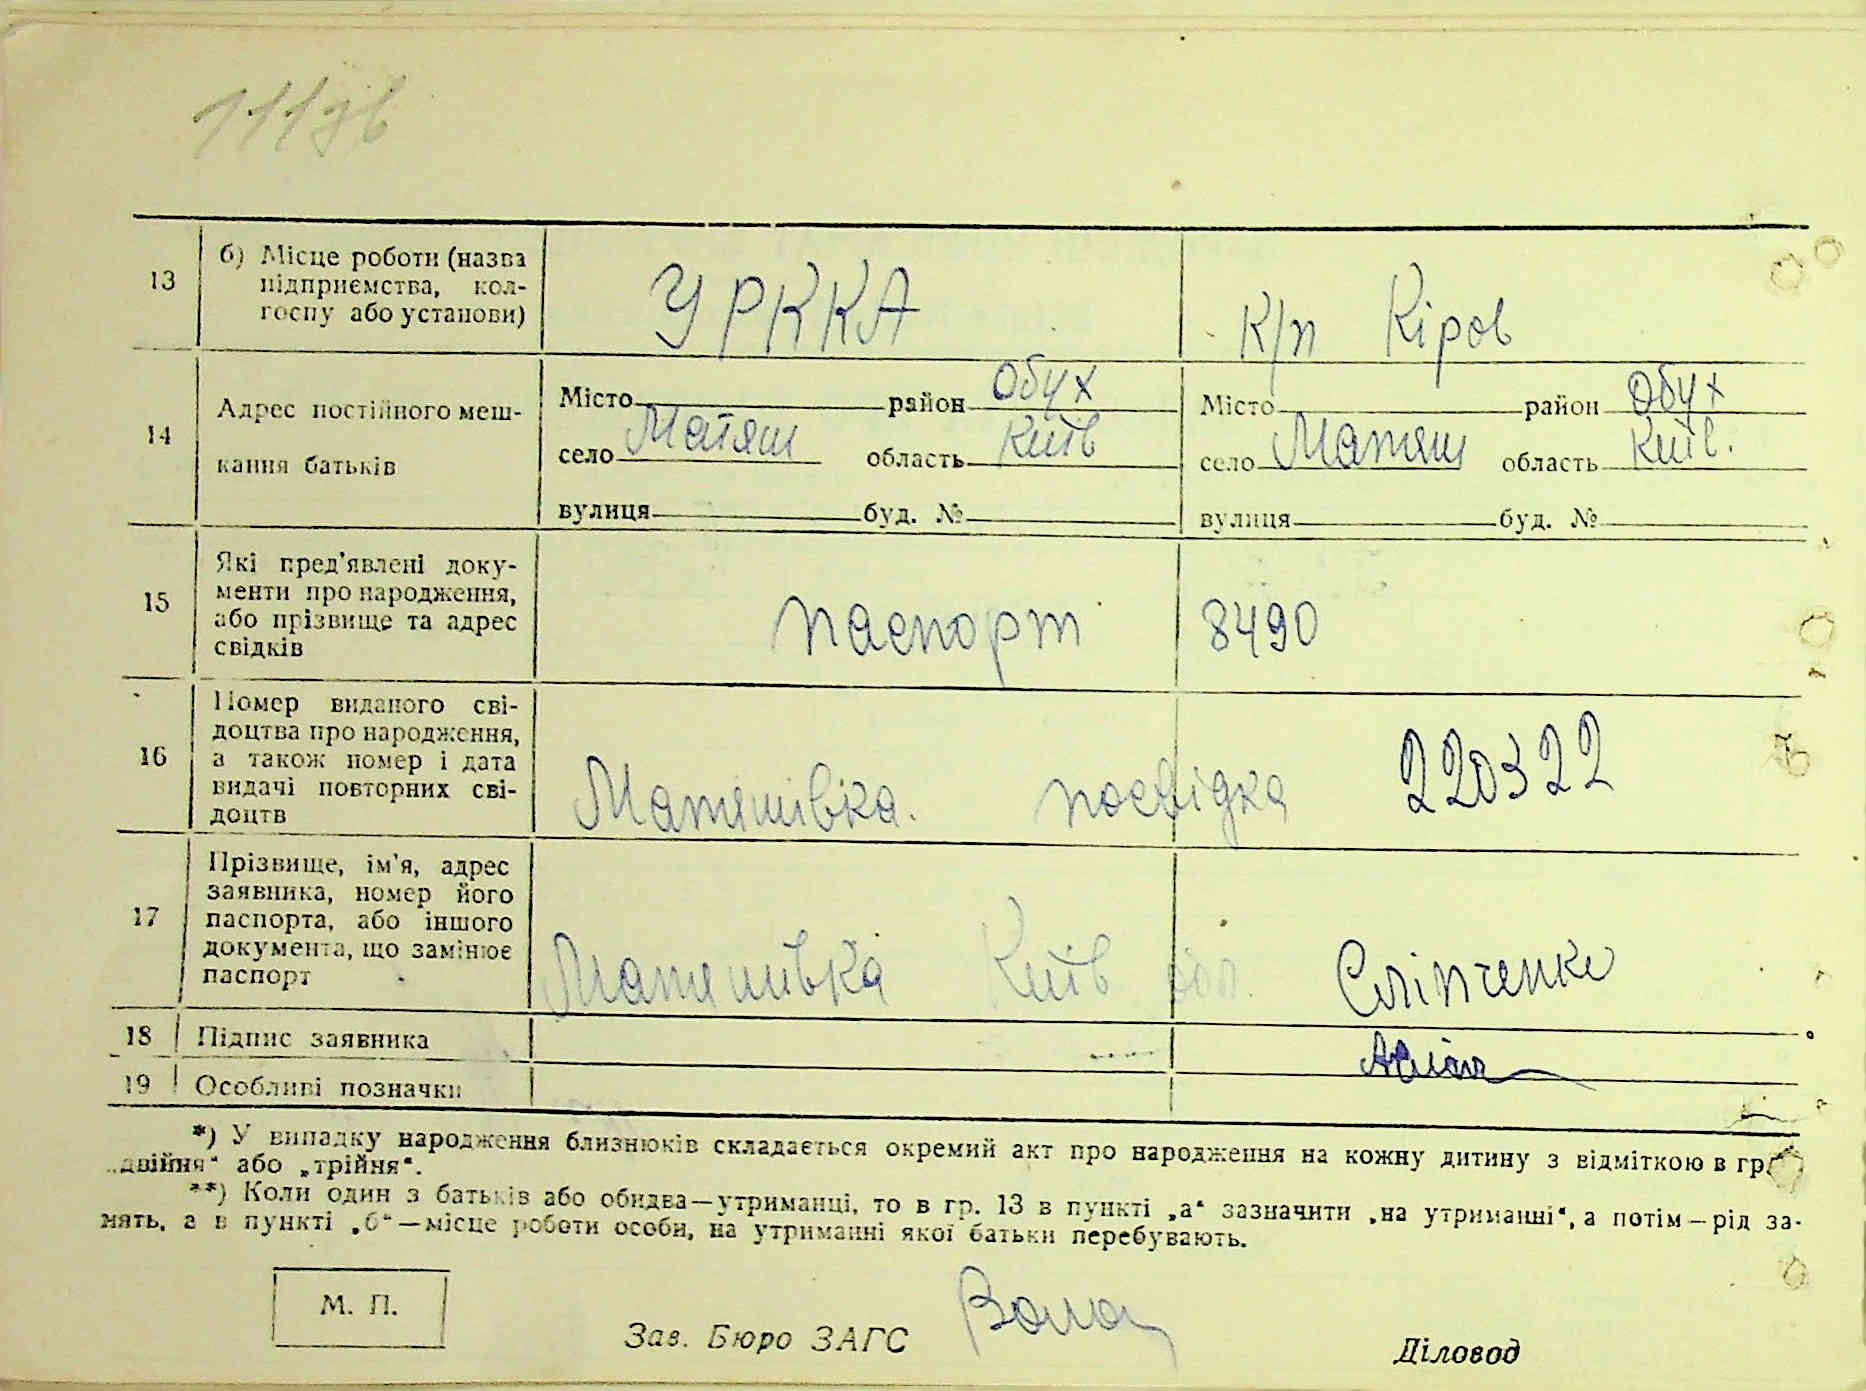 13
б) Місце роботи (назва
підприємства, кол-
госпу або установи)
УРККА
к/п Кіров
14
Адрес постійного меш-
кання батьків
Місто район Обух
село Матяш область Київ
вулиця буд. №
Місто район Обух
село Матяш область Київ.
вулиця буд. №
15
Які пред'явлені доку-
менти про народження,
або прізвище та адрес
свідків
паспорт 8490
16
Номер виданого сві-
доцтва про народження,
а також номер і дата
видачі повторних сві-
доцтв
Матяшівка. посвідка 220322
17
Прізвище, ім'я, адрес
заявника, номер його
паспорта, або іншого
документа, що замінює
паспорт
Матяшівка Київ обл. Сліпченко
18 Підпис заявника
19 Особливі позначки
*) У випадку народження близнюків складається окремий акт про народження на кожну дитину з відміткою в гр.
„двійня“ або „трійня“.
**) Коли один з батьків або обидва—утриманці, то в гр. 13 в пункті „а“ зазначити „на утриманні“, а потім—рід за-
нять, а в пункті „б“—місце роботи особи, на утриманні якої батьки перебувають.
М. П.
Зав. Бюро ЗАГС
Діловод